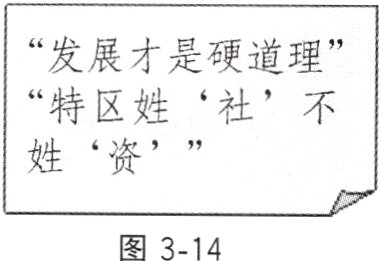 “发展才是硬道理”
“特区姓‘社’不
姓‘资’”
图 3-14